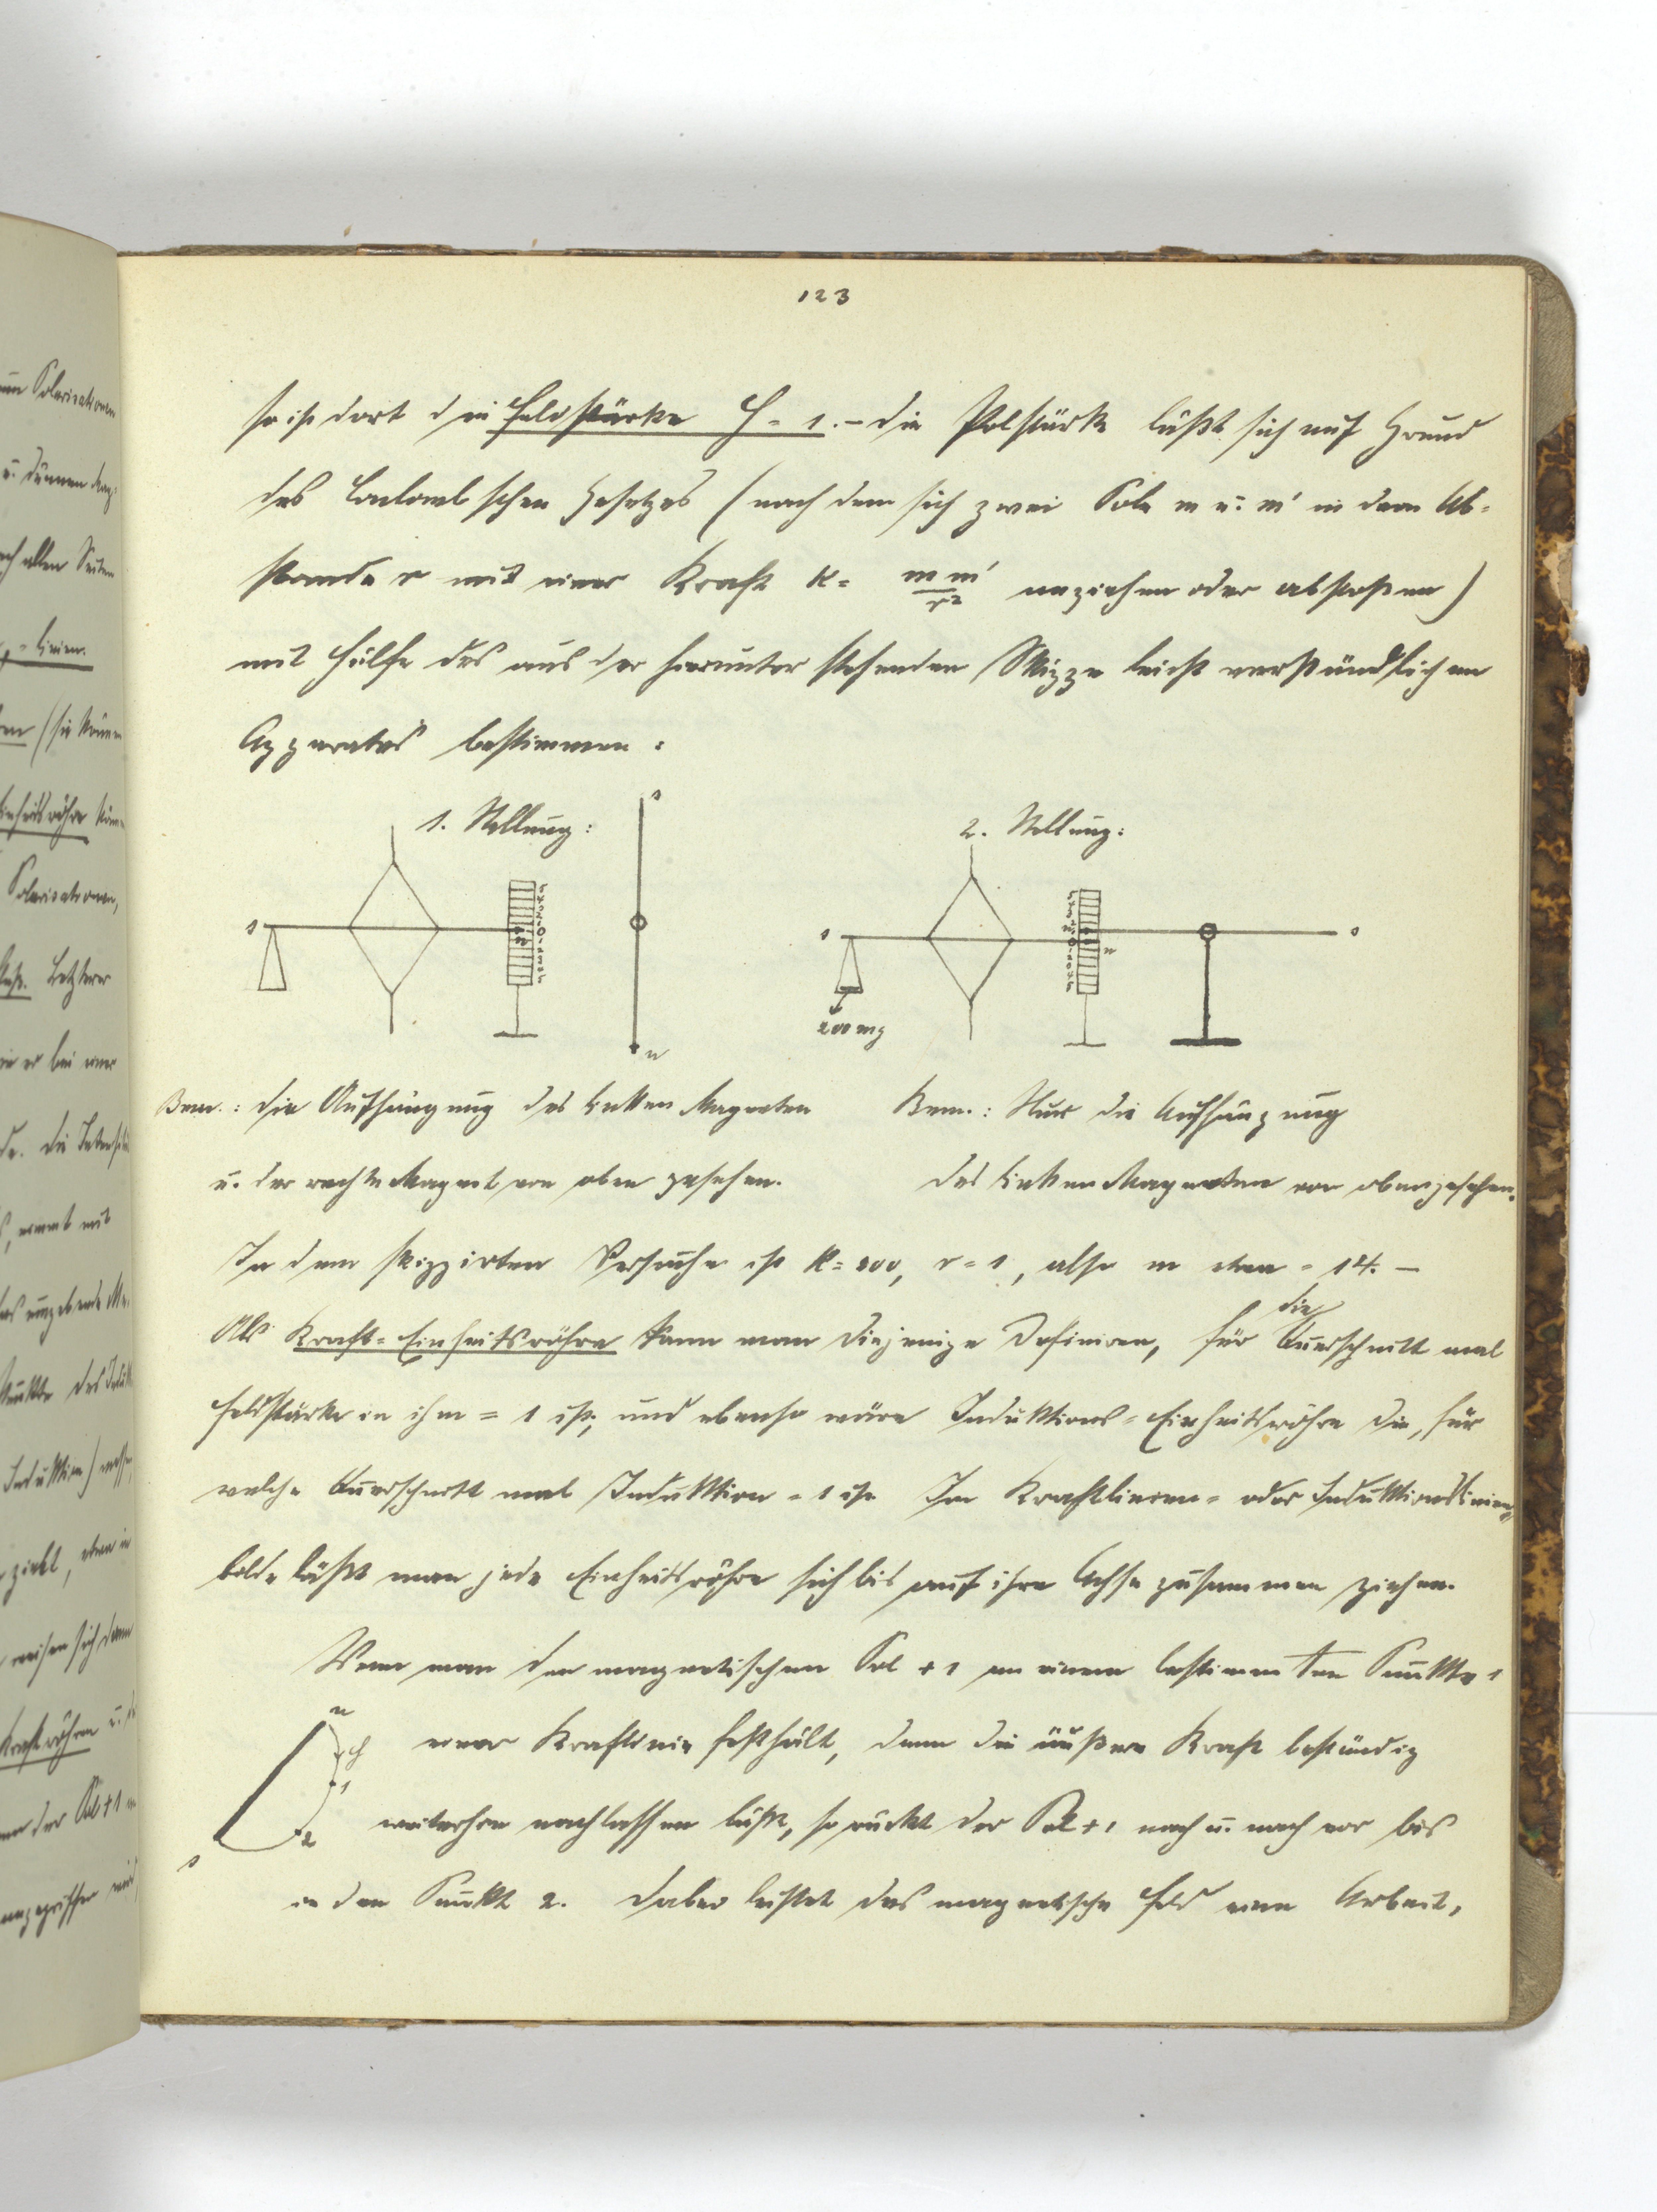 123
so ist dort die Feldstärke H = 1. – Die Polstärke läßt sich auf Grund
des Coulomb'schen Gesetzes (nach dem sich zwei Pole m u. m' in dem Ab-
stande r mit einer Kraft K = m m' / r² anziehen oder abstoßen)
mit Hülfe des aus der hierunter stehenden Skizze leicht verständlichen
Apparates bestimmen:
1. Stellung:
2. Stellung:
s
n
s
n
s
n
s
200 mg
Bem.: Die Aufhängung des linken Magneten
u. der rechte Magnet von oben gesehen.
Bem.: Nur die Aufhängung
des linken Magneten von oben gesehen.
In dem skizzirten Versuche ist K = 200, r = 1, also m etwa = 14. –
Als Kraft-Einheitsröhre kann man diejenige definiren, für die Querschnitt mal
Feldstärke in ihm = 1 ist, und ebenso wäre Induktions-Einheitsröhre die, für
welche Querschnitt mal Induktion = 1 ist. Im Kraftlinien- oder Induktionslinien-
bilde läßt man jede Einheitsröhre sich bis auf ihre Achse zusammen ziehen.
Wenn man den magnetischen Pol +1 an einem bestimmten Punkte 1
einer Kraftlinie festhält, dann die äußere Kraft beständig
weiterhin nachlassen läßt, so rückt der Pol +1 nach u. nach vor bis
in den Punkt 2. Dabei leistet das magnetische Feld eine Arbeit,
n
H
1
2
s